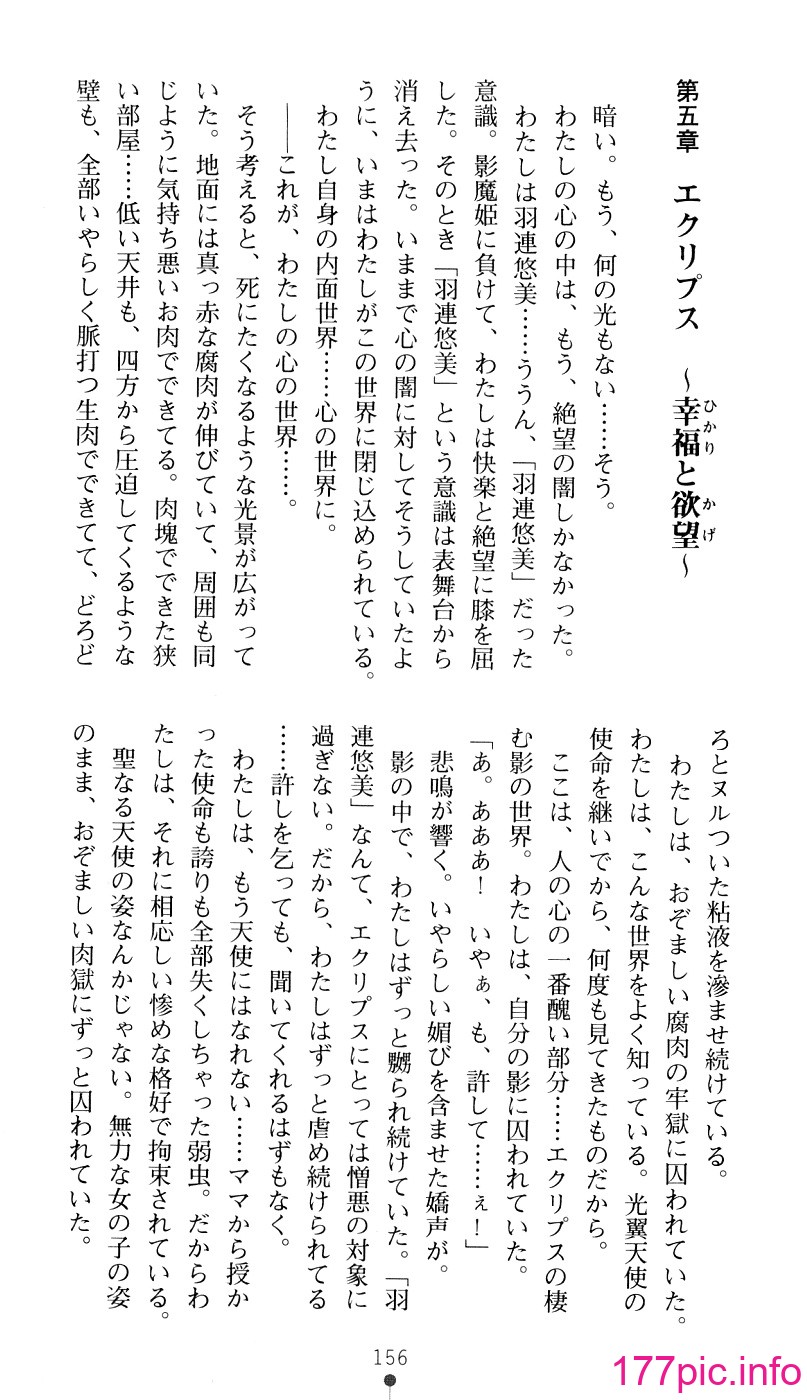 第五章 エクリプス ～幸福と欲望～
ひかり かげ
暗い。もう、何の光もない……そう。
わたしの心の中は、もう、絶望の闇しかなかった。
わたしは羽連悠美……ううん、「羽連悠美」だった
意識。影魔姫に負けて、わたしは快楽と絶望に膝を屈
した。そのとき「羽連悠美」という意識は表舞台から
消え去った。いままで心の闇に対してそうしていたよ
うに、いまはわたしがこの世界に閉じ込められている。
わたし自身の内面世界……心の世界に。
――これが、わたしの心の世界……。
そう考えると、死にたくなるような光景が広がって
いた。地面には真っ赤な腐肉が伸びていて、周囲も同
じように気持ち悪いお肉でできてる。肉塊でできた狭
い部屋……低い天井も、四方から圧迫してくるような
壁も、全部いやらしく脈打つ生肉でできてて、どろど
ろとヌルついた粘液を滲ませ続けている。
わたしは、おぞましい腐肉の牢獄に囚われていた。
わたしは、こんな世界をよく知っている。光翼天使の
使命を継いでから、何度も見てきたものだから。
ここは、人の心の一番醜い部分……エクリプスの棲
む影の世界。わたしは、自分の影に囚われていた。
「あ。あああ！　いやぁ、も、許して……ぇ！」
悲鳴が響く。いやらしい媚びを含ませた嬌声が。
影の中で、わたしはずっと嬲られ続けていた。「羽
連悠美」なんて、エクリプスにとっては憎悪の対象に
過ぎない。だから、わたしはずっと虐め続けられてる
……許しを乞っても、聞いてくれるはずもなく。
わたしは、もう天使にはなれない……ママから授か
った使命も誇りも全部失くしちゃった弱虫。だからわ
たしは、それに相応しい惨めな格好で拘束されている。
聖なる天使の姿なんかじゃない。無力な女の子の姿
のまま、おぞましい肉獄にずっと囚われていた。
156
177pic.info